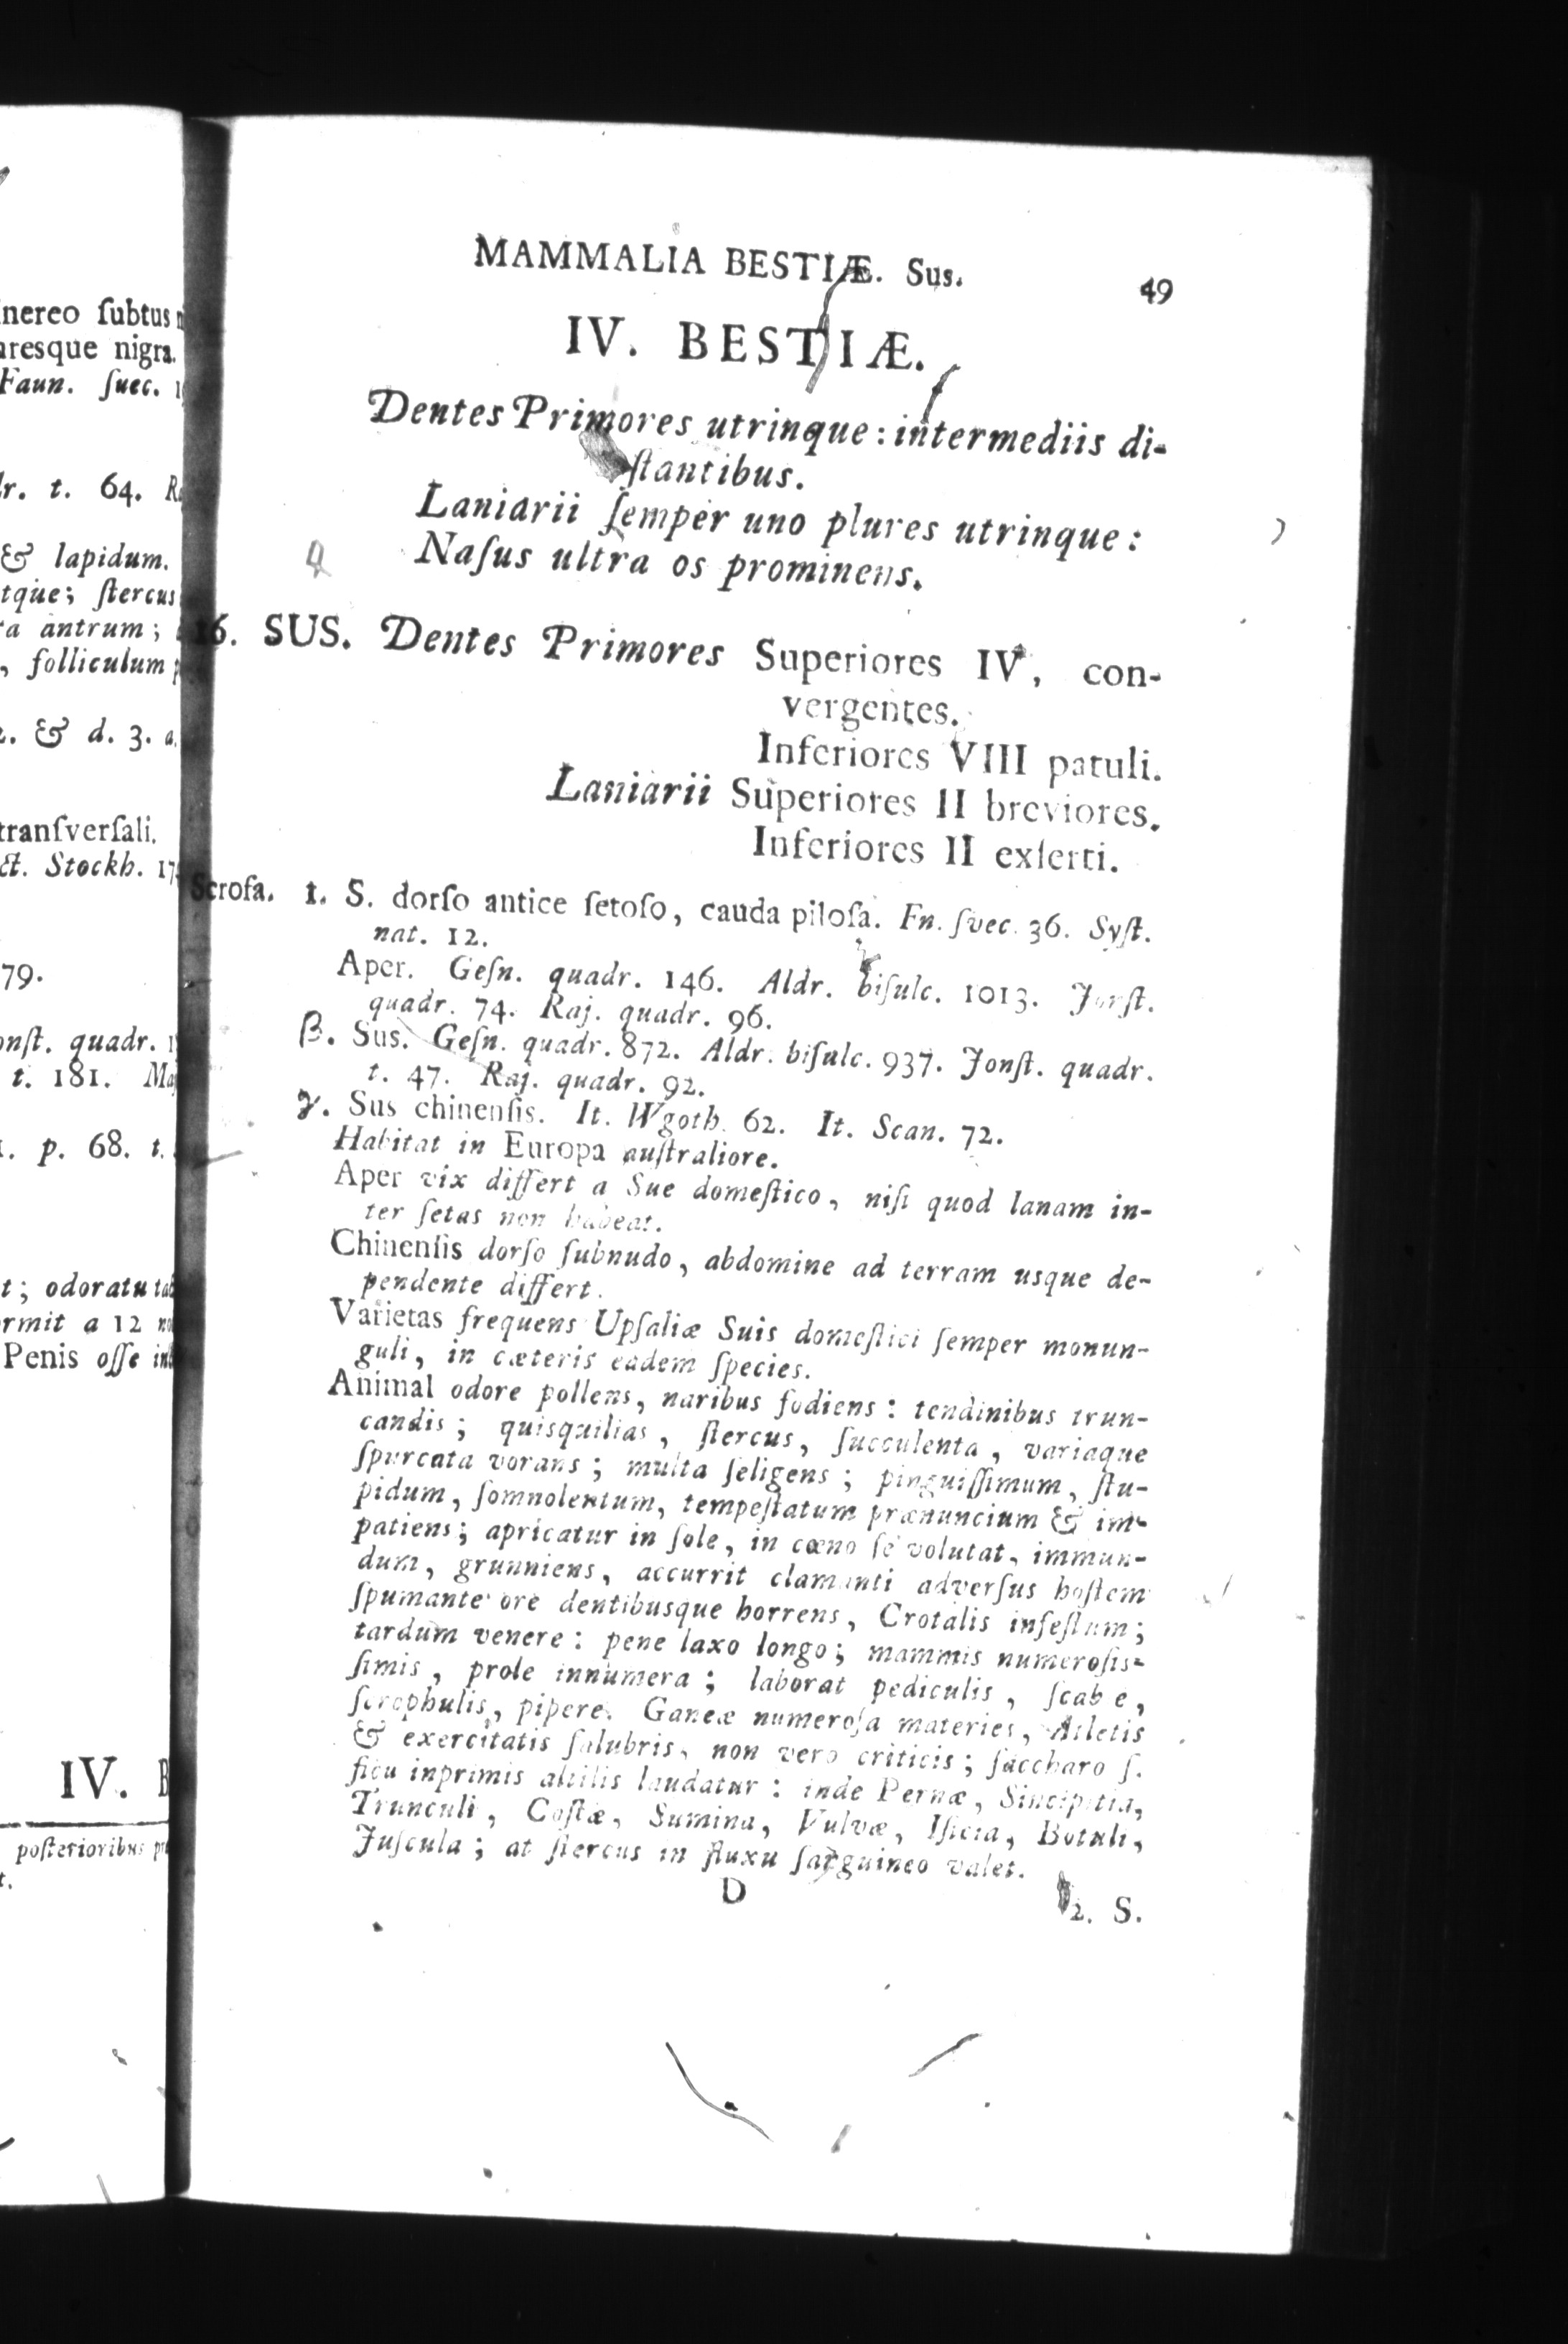 nereo ſubtus
resque nigra.
Faun. ſuec.
r. t. 64.
& lapidum.
tque; ſtercus
a antrum;
, folliculum
. & d. 3.
tranſverſali.
Stockh.
79.
nſt. quadr.
t. 181.
. p. 68. t.
t; odoratu
rmit a 12
Penis oſſe
IV.
poſterioribus
t.
MAMMALIA BESTIÆ. Sus. 49
IV. BESTIÆ.
Dentes Primores utrinque: intermediis di-
ſtantibus.
Laniarii ſemper uno plures utrinque:
Naſus ultra os prominens.
16. SUS. Dentes Primores Superiores IV, con-
vergentes.
Inferiores VIII patuli.
Laniarii Superiores II breviores.
Inferiores II exſerti.
Scrofa. 1. S. dorſo antice ſetoſo, cauda piloſa. Fn. ſvec. 36. Syſt.
nat. 12.
Aper. Geſn. quadr. 146. Aldr. biſulc. 1013. Jonſt.
quadr. 74. Raj. quadr. 96.
β. Sus. Geſn. quadr. 872. Aldr. biſulc. 937. Jonſt. quadr.
t. 47. Raj. quadr. 92.
γ. Sus chinenſis. It. Wgoth. 62. It. Scan. 72.
Habitat in Europa auſtraliore.
Aper vix differt a Sue domeſtico, niſi quod lanam in-
ter ſetas non habeat.
Chinenſis dorſo ſubnudo, abdomine ad terram usque de-
pendente differt.
Varietas frequens Upſaliæ Suis domeſtici ſemper monun-
guli, in cæteris eadem ſpecies.
Animal odore pollens, naribus fodiens: tendinibus trun-
candis; quisquilias, ſtercus, ſucculenta, variaque
ſpurcata vorans; multa ſeligens; pinguiſſimum, ſtu-
pidum, ſomnolentum, tempeſtatum prænuncium & im-
patiens; apricatur in ſole, in cœno ſe volutat, immun-
dum, grunniens, accurrit clamanti adverſus hoſtem
ſpumante ore dentibusque horrens, Crotalis infeſtum;
tardum venere: pene laxo longo; mammis numeroſis-
ſimis, prole innumera; laborat pediculis, ſcabie,
ſcrophulis, pipere. Ganeæ numeroſa materies, Atletis
& exercitatis ſalubris, non vero criticis; ſaccharo ſ.
ficu inprimis altilis laudatur: inde Pernæ, Sincipitia,
Trunculi, Coſtæ, Sumina, Vulvæ, Iſicia, Botuli,
Juſcula; at ſtercus in fluxu ſanguineo valet.
D 2. S.